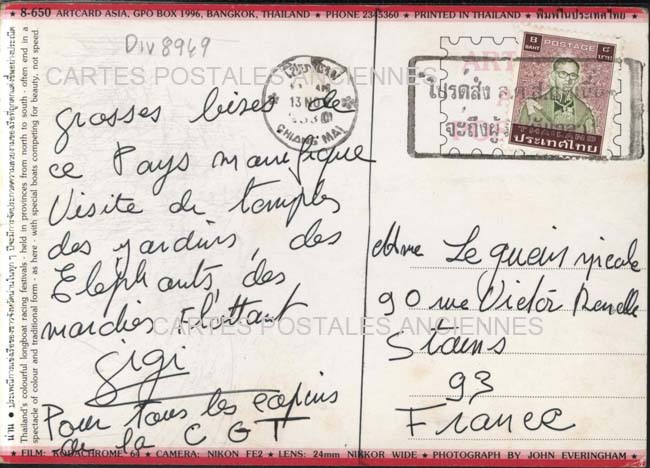 8-650 ARTCARD ASIA, GPO BOX 1996, BANGKOK, THAILAND ★ PHONE 2345360 ★ PRINTED IN THAILAND ★ พิมพ์ในประเทศไทย
Div 8969
CARTES POSTALES ANCIENNES
grosses bises de
ce Pays manifique
Visite de temples
des jardins, des
Elephants, des
marchés Flottant
gigi
Pour tous les copins
de la CGT
13 NO
CHIANG MAI
8 POSTAGE
BAHT
บาท
THAILAND
ประเทศไทย
โปรดส่ง
จะถึงผู้
Mme Le queis nicole
90 rue Victor Renelle
Stains
93
France
CARTES POSTALES ANCIENNES
Thailand's colourful longboat racing festivals - held in provinces from north to south - often end in a
spectacle of colour and traditional form - as here - with special boats competing for beauty, not speed.
FILM: KODACHROME 64 ★ CAMERA: NIKON FE2 ★ LENS: 24mm NIKKOR WIDE ★ PHOTOGRAPH BY JOHN EVERINGHAM ★